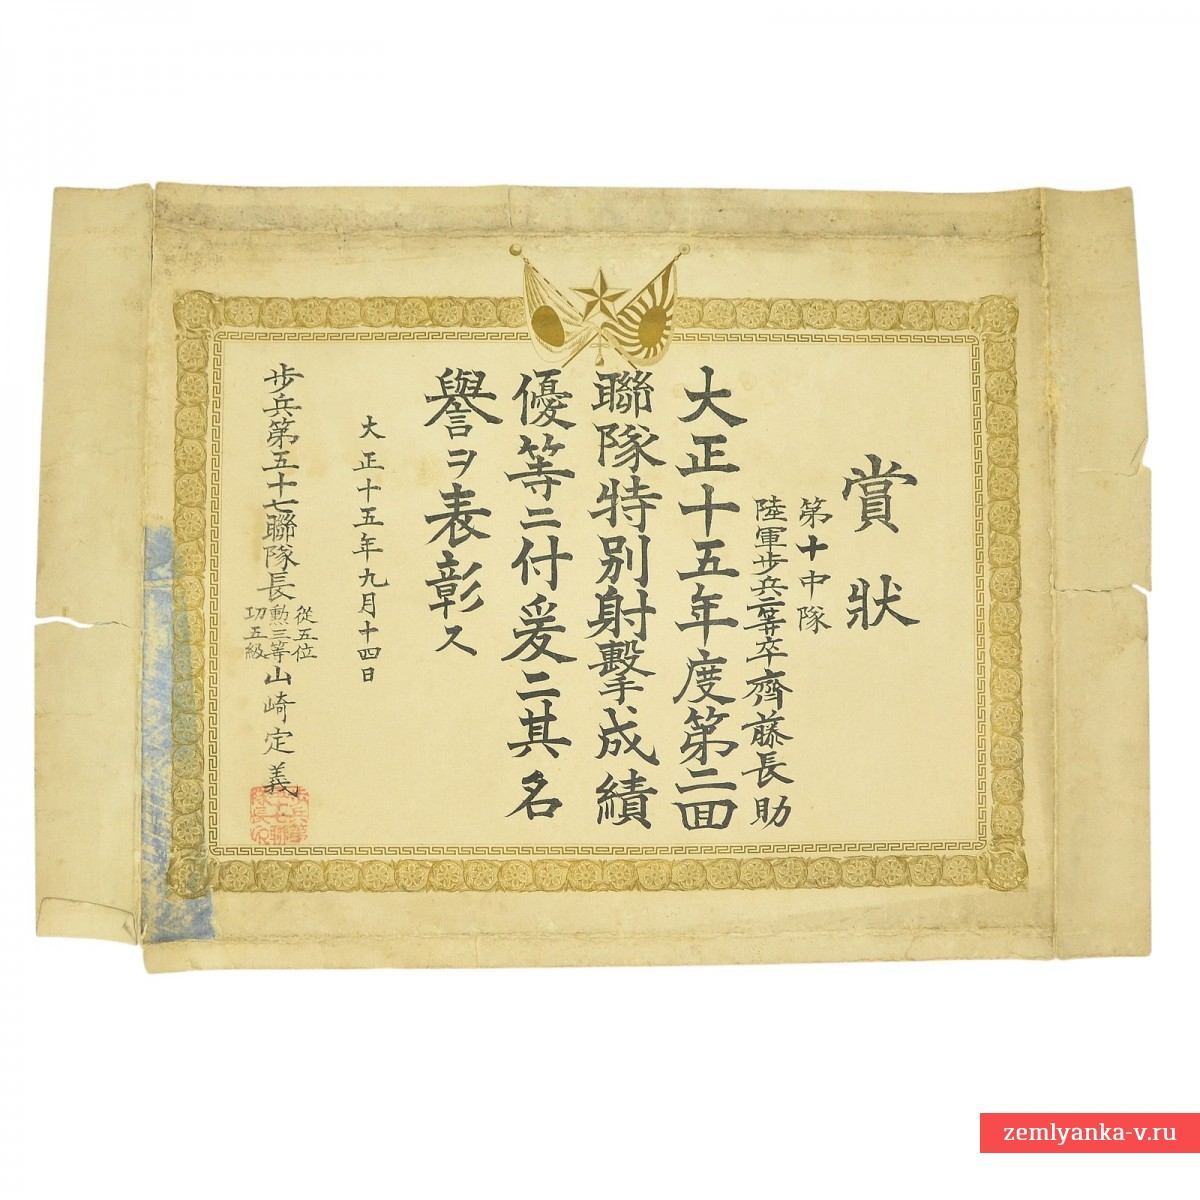 賞狀
第十中隊
陸軍歩兵二等卒齊藤長助
大正十五年度第二回
聯隊特別射擊成績
優等ニ付爰ニ其名
譽ヲ表彰ス
大正十五年九月十四日
歩兵第五十七聯隊長
從五位
勲三等
功五級
山崎定義
歩兵第
五十七聯
隊長印
zemlyanka-v.ru